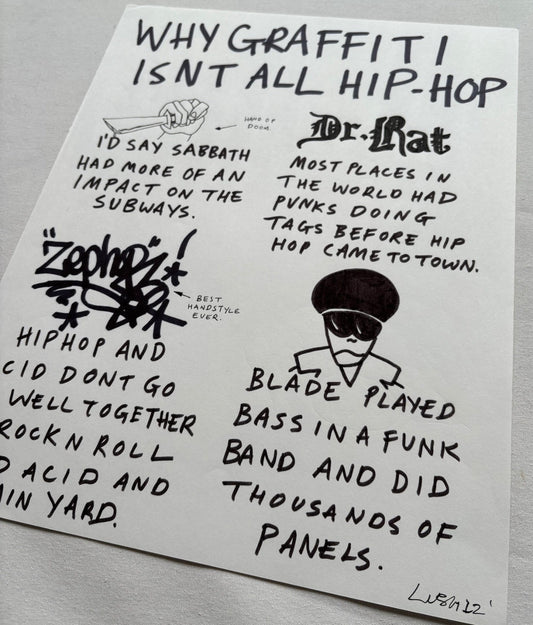 WHY GRAFFITI
ISNT ALL HIP-HOP
HAND OF
DOOM
I'D SAY SABBATH
HAD MORE OF AN
IMPACT ON THE
SUBWAYS.
Dr. Rat
MOST PLACES IN
THE WORLD HAD
PUNKS DOING
TAGS BEFORE HIP
HOP CAME TO TOWN.
"Zephyr"!
BEST
HANDSTYLE
EVER.
HIPHOP AND
CID DONT GO
WELL TOGETHER
ROCK N ROLL
D ACID AND
IN YARD.
BLADE PLAYED
BASS IN A FUNK
BAND AND DID
THOUSANDS OF
PANELS.
LUSH 12'